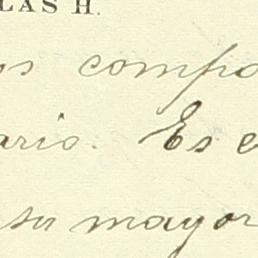 LAS H.
os compo
ario. Es e
su mayor